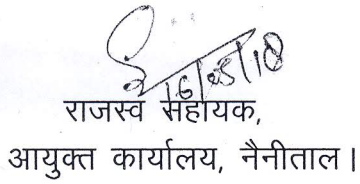 16/05/18
राजस्व सहायक,
आयुक्त कार्यालय, नैनीताल।